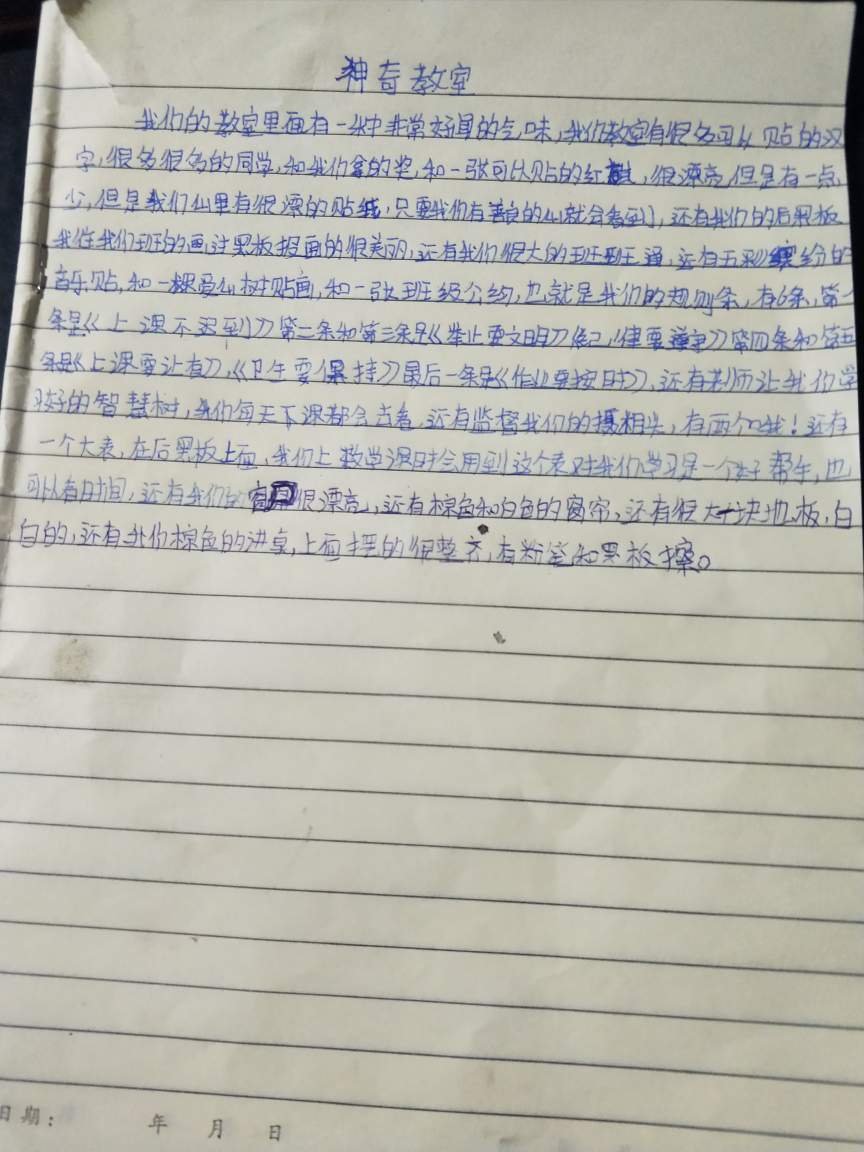 神奇教室
我们的教室里面有一种非常好闻的气味,我们教室有很多可以贴的汉
字,很多很多的同学,和我们拿的奖,和一张可以贴的红旗,很漂亮但是有一点
少,但是我们心里有很漂的贴纸,只要我们有善良的心就会看到,还有我们的后黑板
我在我们班的画注黑板报画的很美丽,还有我们很大的班班通,还有五彩缤纷的
音乐贴,和一棵爱心树贴画,和一张班级公约,也就是我们的规则条,有6条,第一
条是《上课不迟到》第二条和第三条是《举止要文明》《纪律要遵守》第四条和第五
条是《上课要让有》,《卫生要保持》最后一条是《作业要按时》,还有老师让我们学
习好的智慧树,我们每天下课都会去看,还有监督我们的摄相头,有两个哦!还有
一个大表,在后黑板上面,我们上数学课时会用到这个表对我们学习是一个好帮手,也
可以看时间,还有我们的窗很漂亮,还有棕色和白色的窗帘,还有很大一块地板,白
白的,还有我们棕色的讲桌,上面摆的很整齐,有粉笔和黑板擦。
日期: 年 月 日